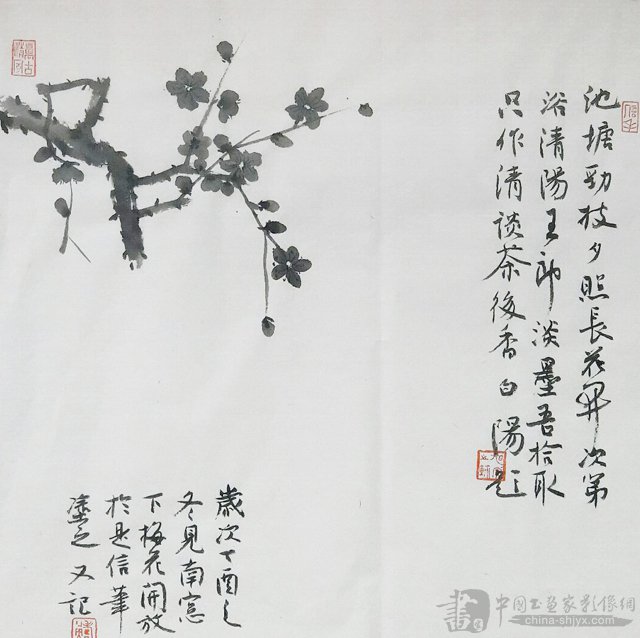 池塘勁枝夕照長花開次第
浴清陽王郎淡墨吾拾取
只作清談茶後香白陽題
歲次丁酉之
冬見南窓
下梅花開放
於是信筆
塗之又記
中国书画家影像網
china-shjyx.com